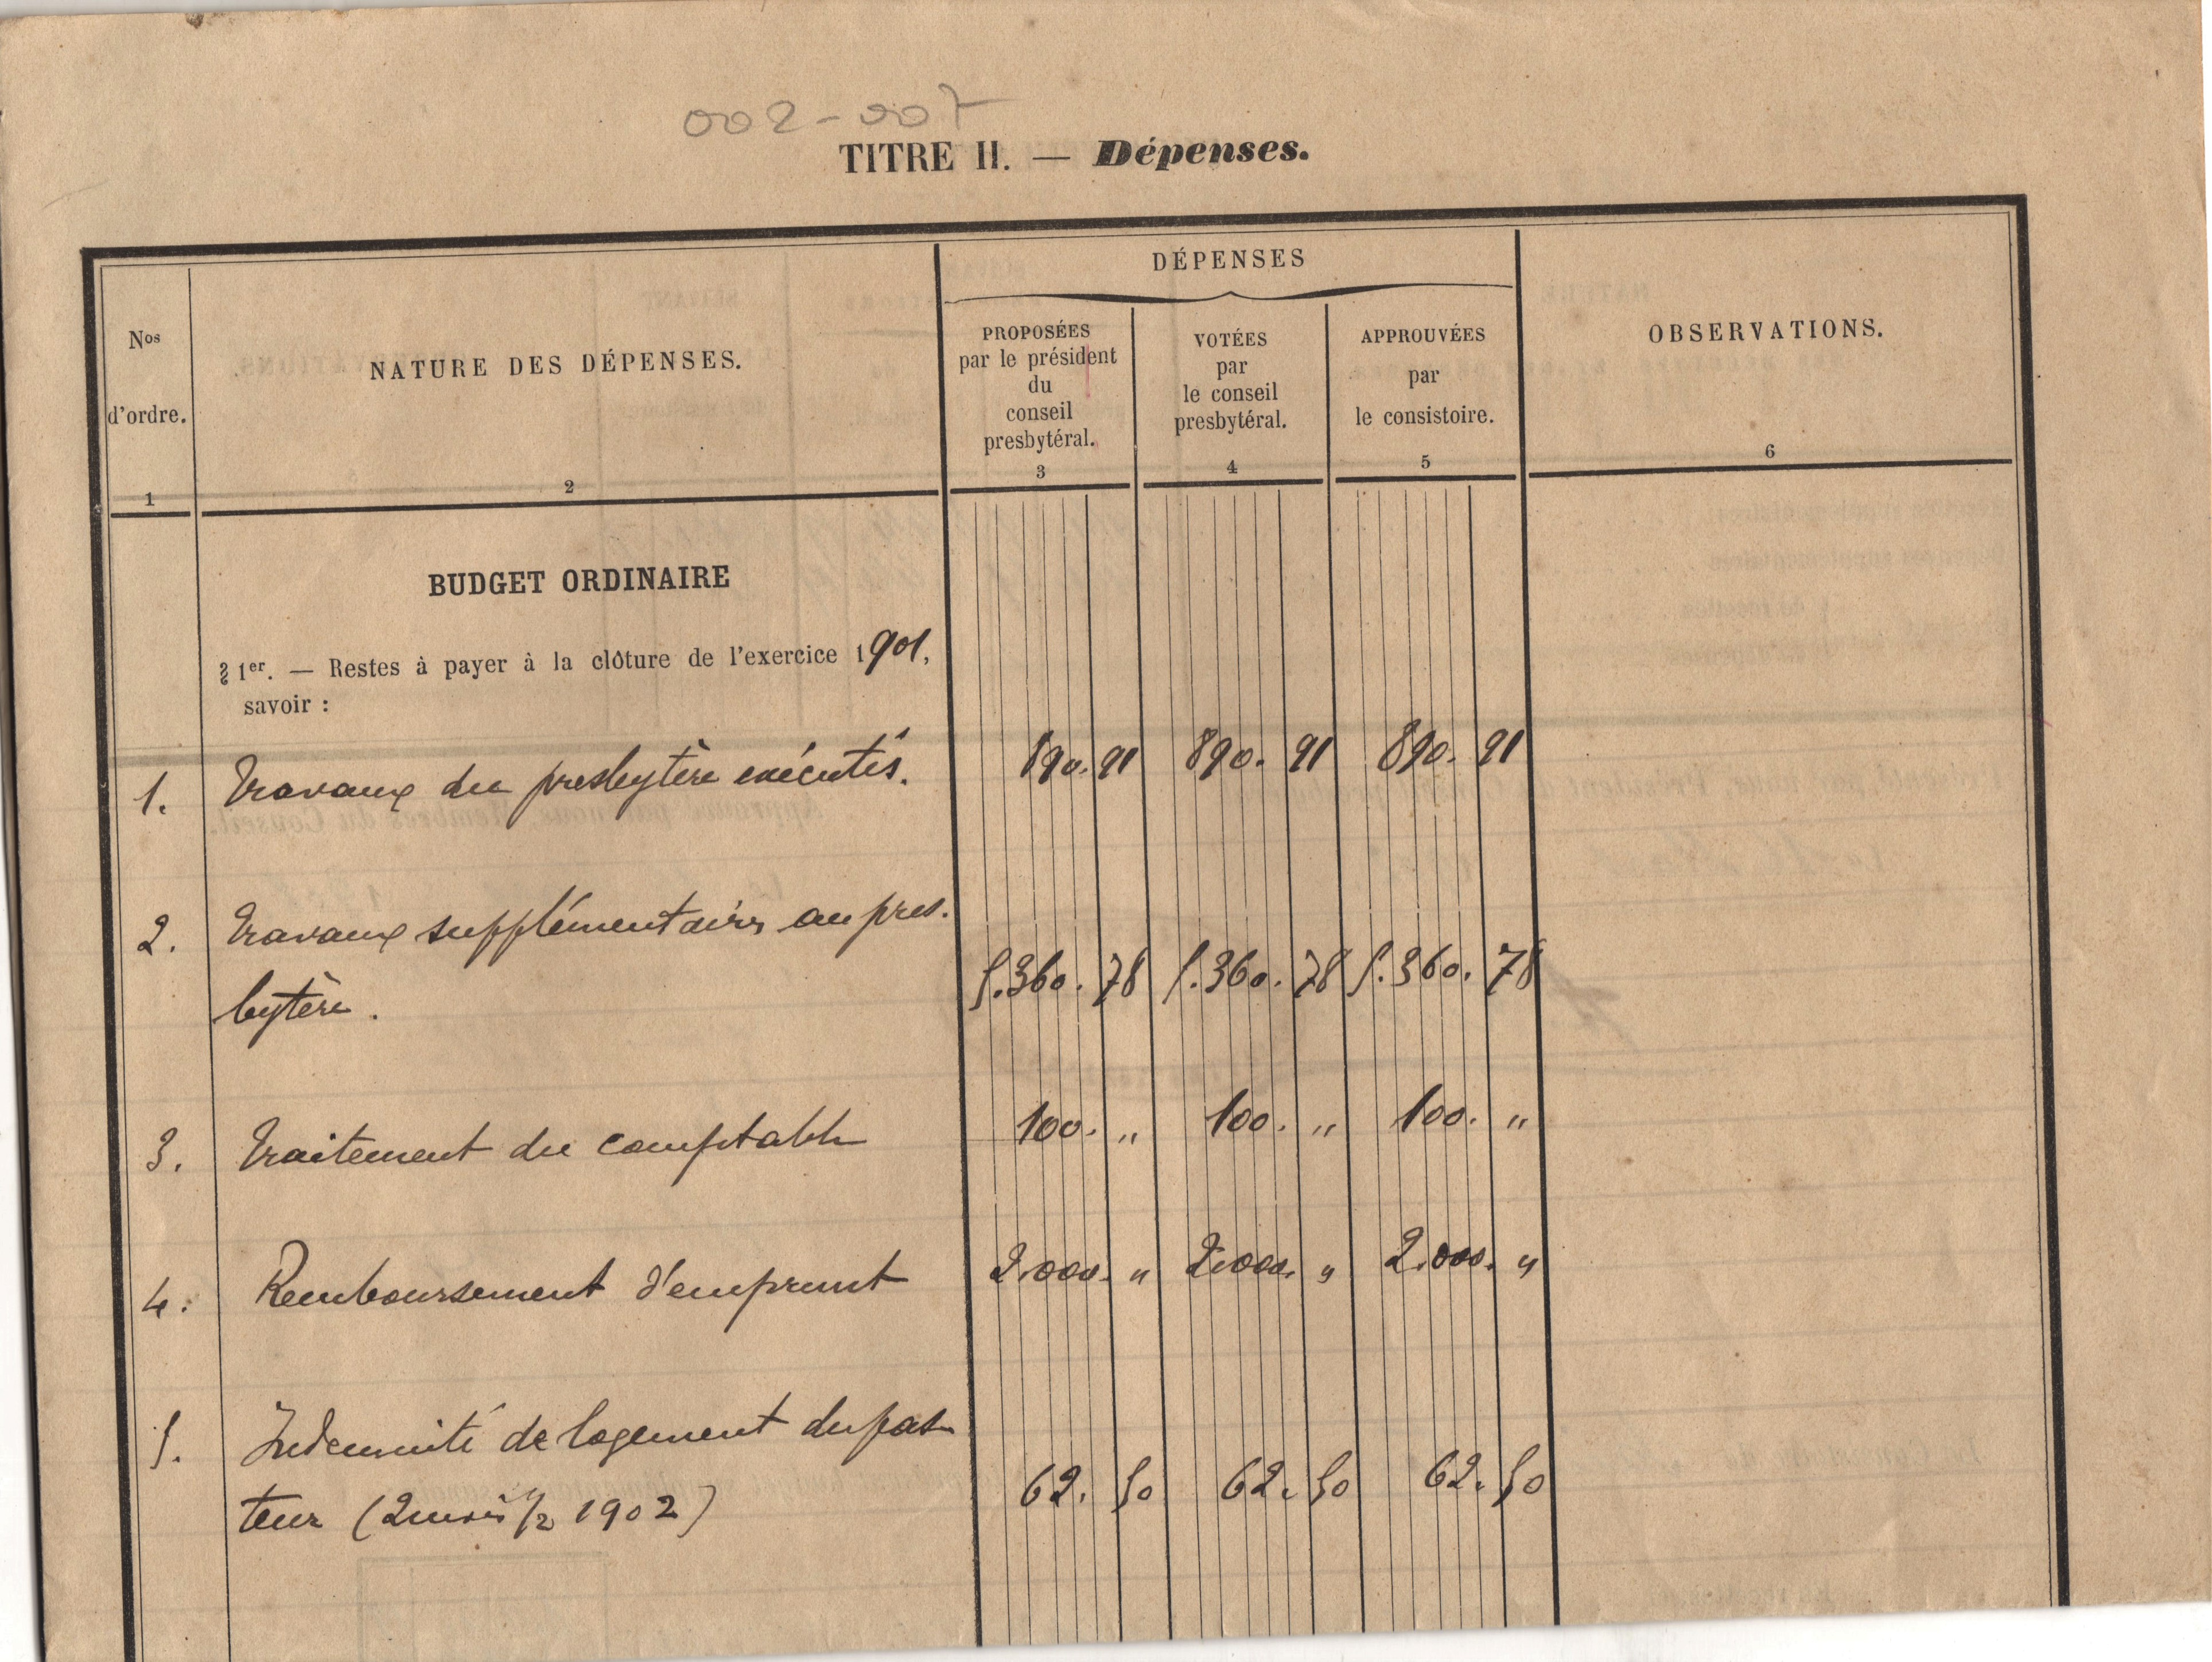 002-007
TITRE II. — Dépenses.
Nos d'ordre.
NATURE DES DÉPENSES.
DÉPENSES
PROPOSÉES
par le président
du
conseil
presbytéral.
VOTÉES
par
le conseil
presbytéral.
APPROUVÉES
par
le consistoire.
OBSERVATIONS.
1 2 3 4 5 6
BUDGET ORDINAIRE
§ 1er. — Restes à payer à la clôture de l'exercice 1901,
savoir :
1. Travaux du presbytère exécutés. 890. 91 890. 91 890. 91
2. Travaux supplémentaires au pres-
bytère. 5.360. 78 5.360. 78 5.360. 78
3. Traitement du comptable 100. " 100. " 100. "
4. Remboursement d'emprunt 2.000. " 2.000. " 2.000. "
5. Indemnité de logement du pas-
teur (2 mois 1/2 1902) 62. 50 62. 50 62. 50